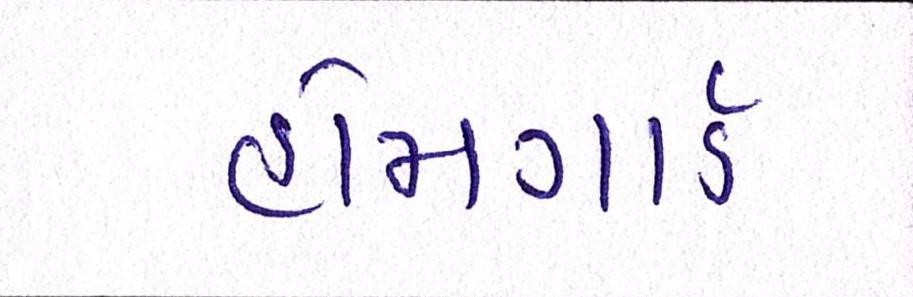 હોમગાર્ડ